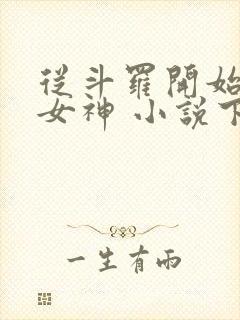 從斗羅開始
女神 小說下
一生有雨